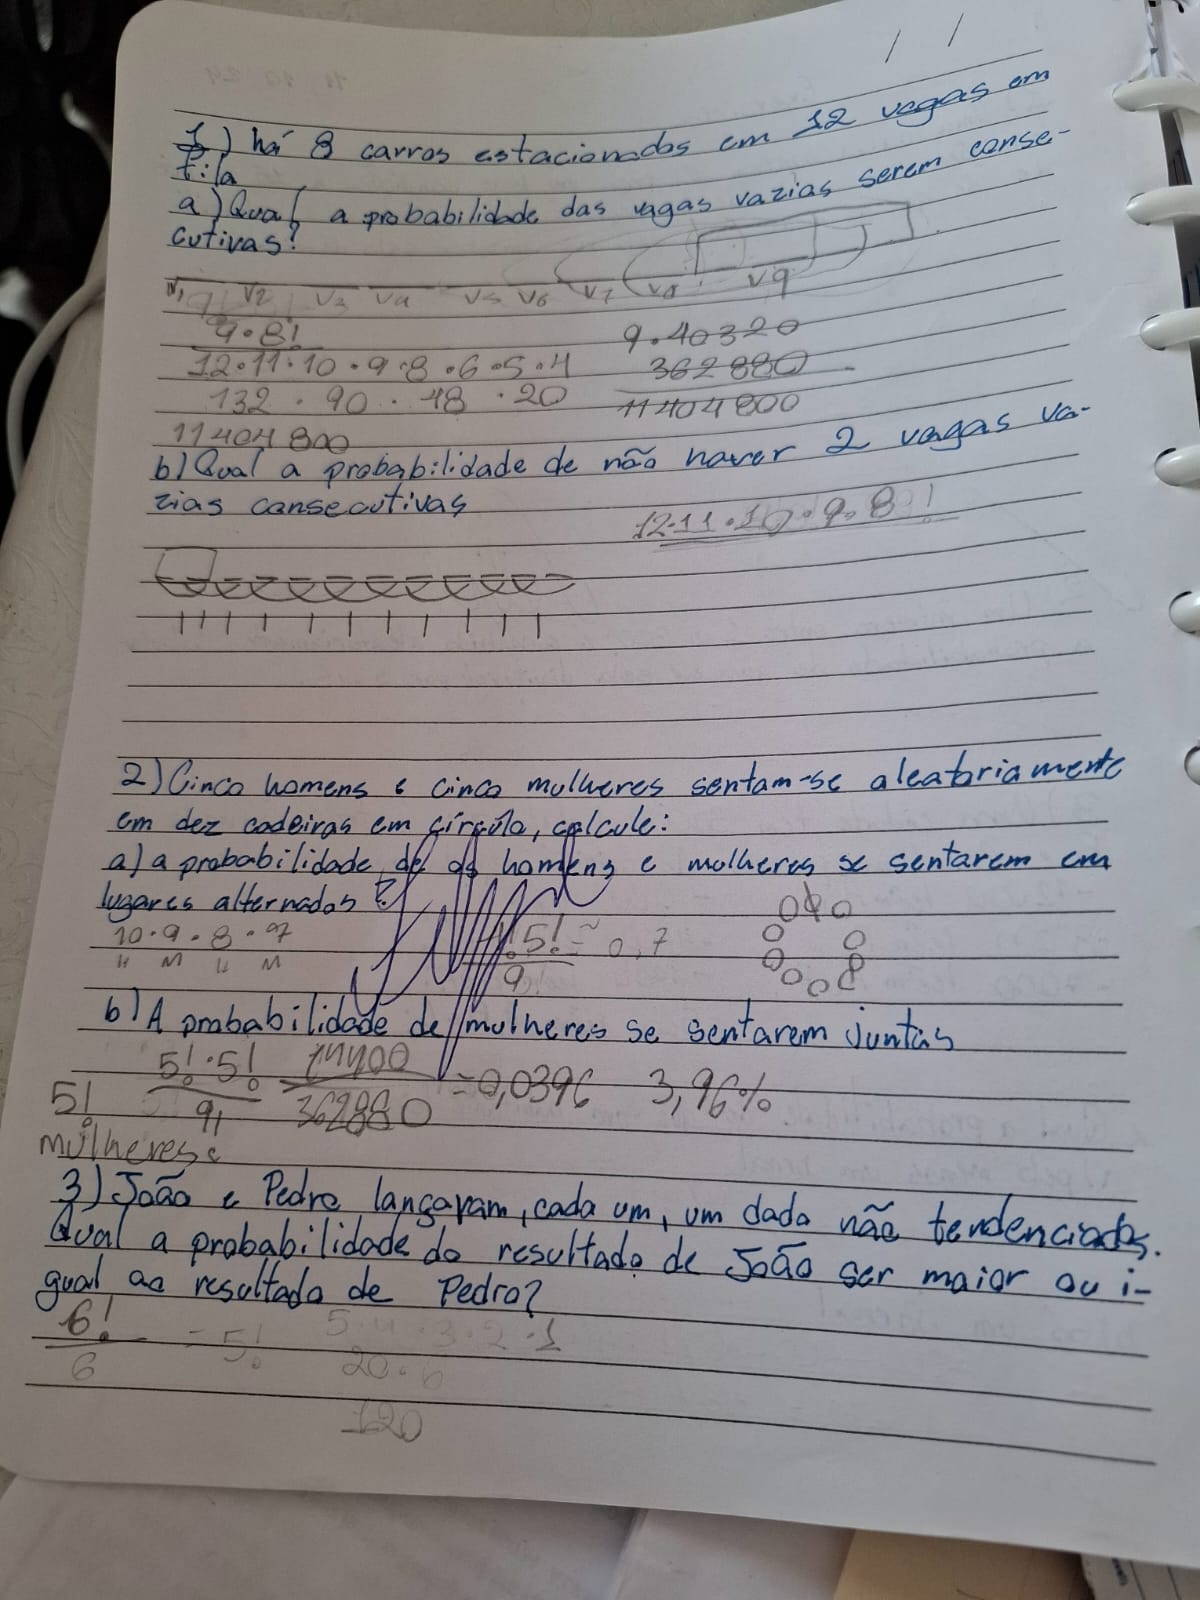 / /
1) há 8 carros estacionados em 12 vagas em
fila
a) Qual a probabilidade das vagas vazias serem conse-
cutivas?
V1 V2 V3 V4 V5 V6 V7 V8 V9
9·8! 9·40320
12·11·10·9·8·6·5·4 362880
132 · 90 · 48 · 20 11404800
11404800
b) Qual a probabilidade de não haver 2 vagas va-
zias consecutivas
12·11·10·9·8!
2) Cinco homens e cinco mulheres sentam-se aleatoriamente
em dez cadeiras em círculo, calcule:
a) a probabilidade de os homens e mulheres se sentarem em
lugares alternados?
10·9·8·7 5! ≈ 0,7
H M H M 9
b) A probabilidade de mulheres se sentarem juntas
5!·5! 14400 = 0,0396 3,96%
5! 9! 362880
mulheres
3) João e Pedro lançaram, cada um, um dado não tendenciados.
Qual a probabilidade do resultado de João ser maior ou i-
gual ao resultado de Pedro?
6! = 5! 5·4·3·2·1
6 20·6
120